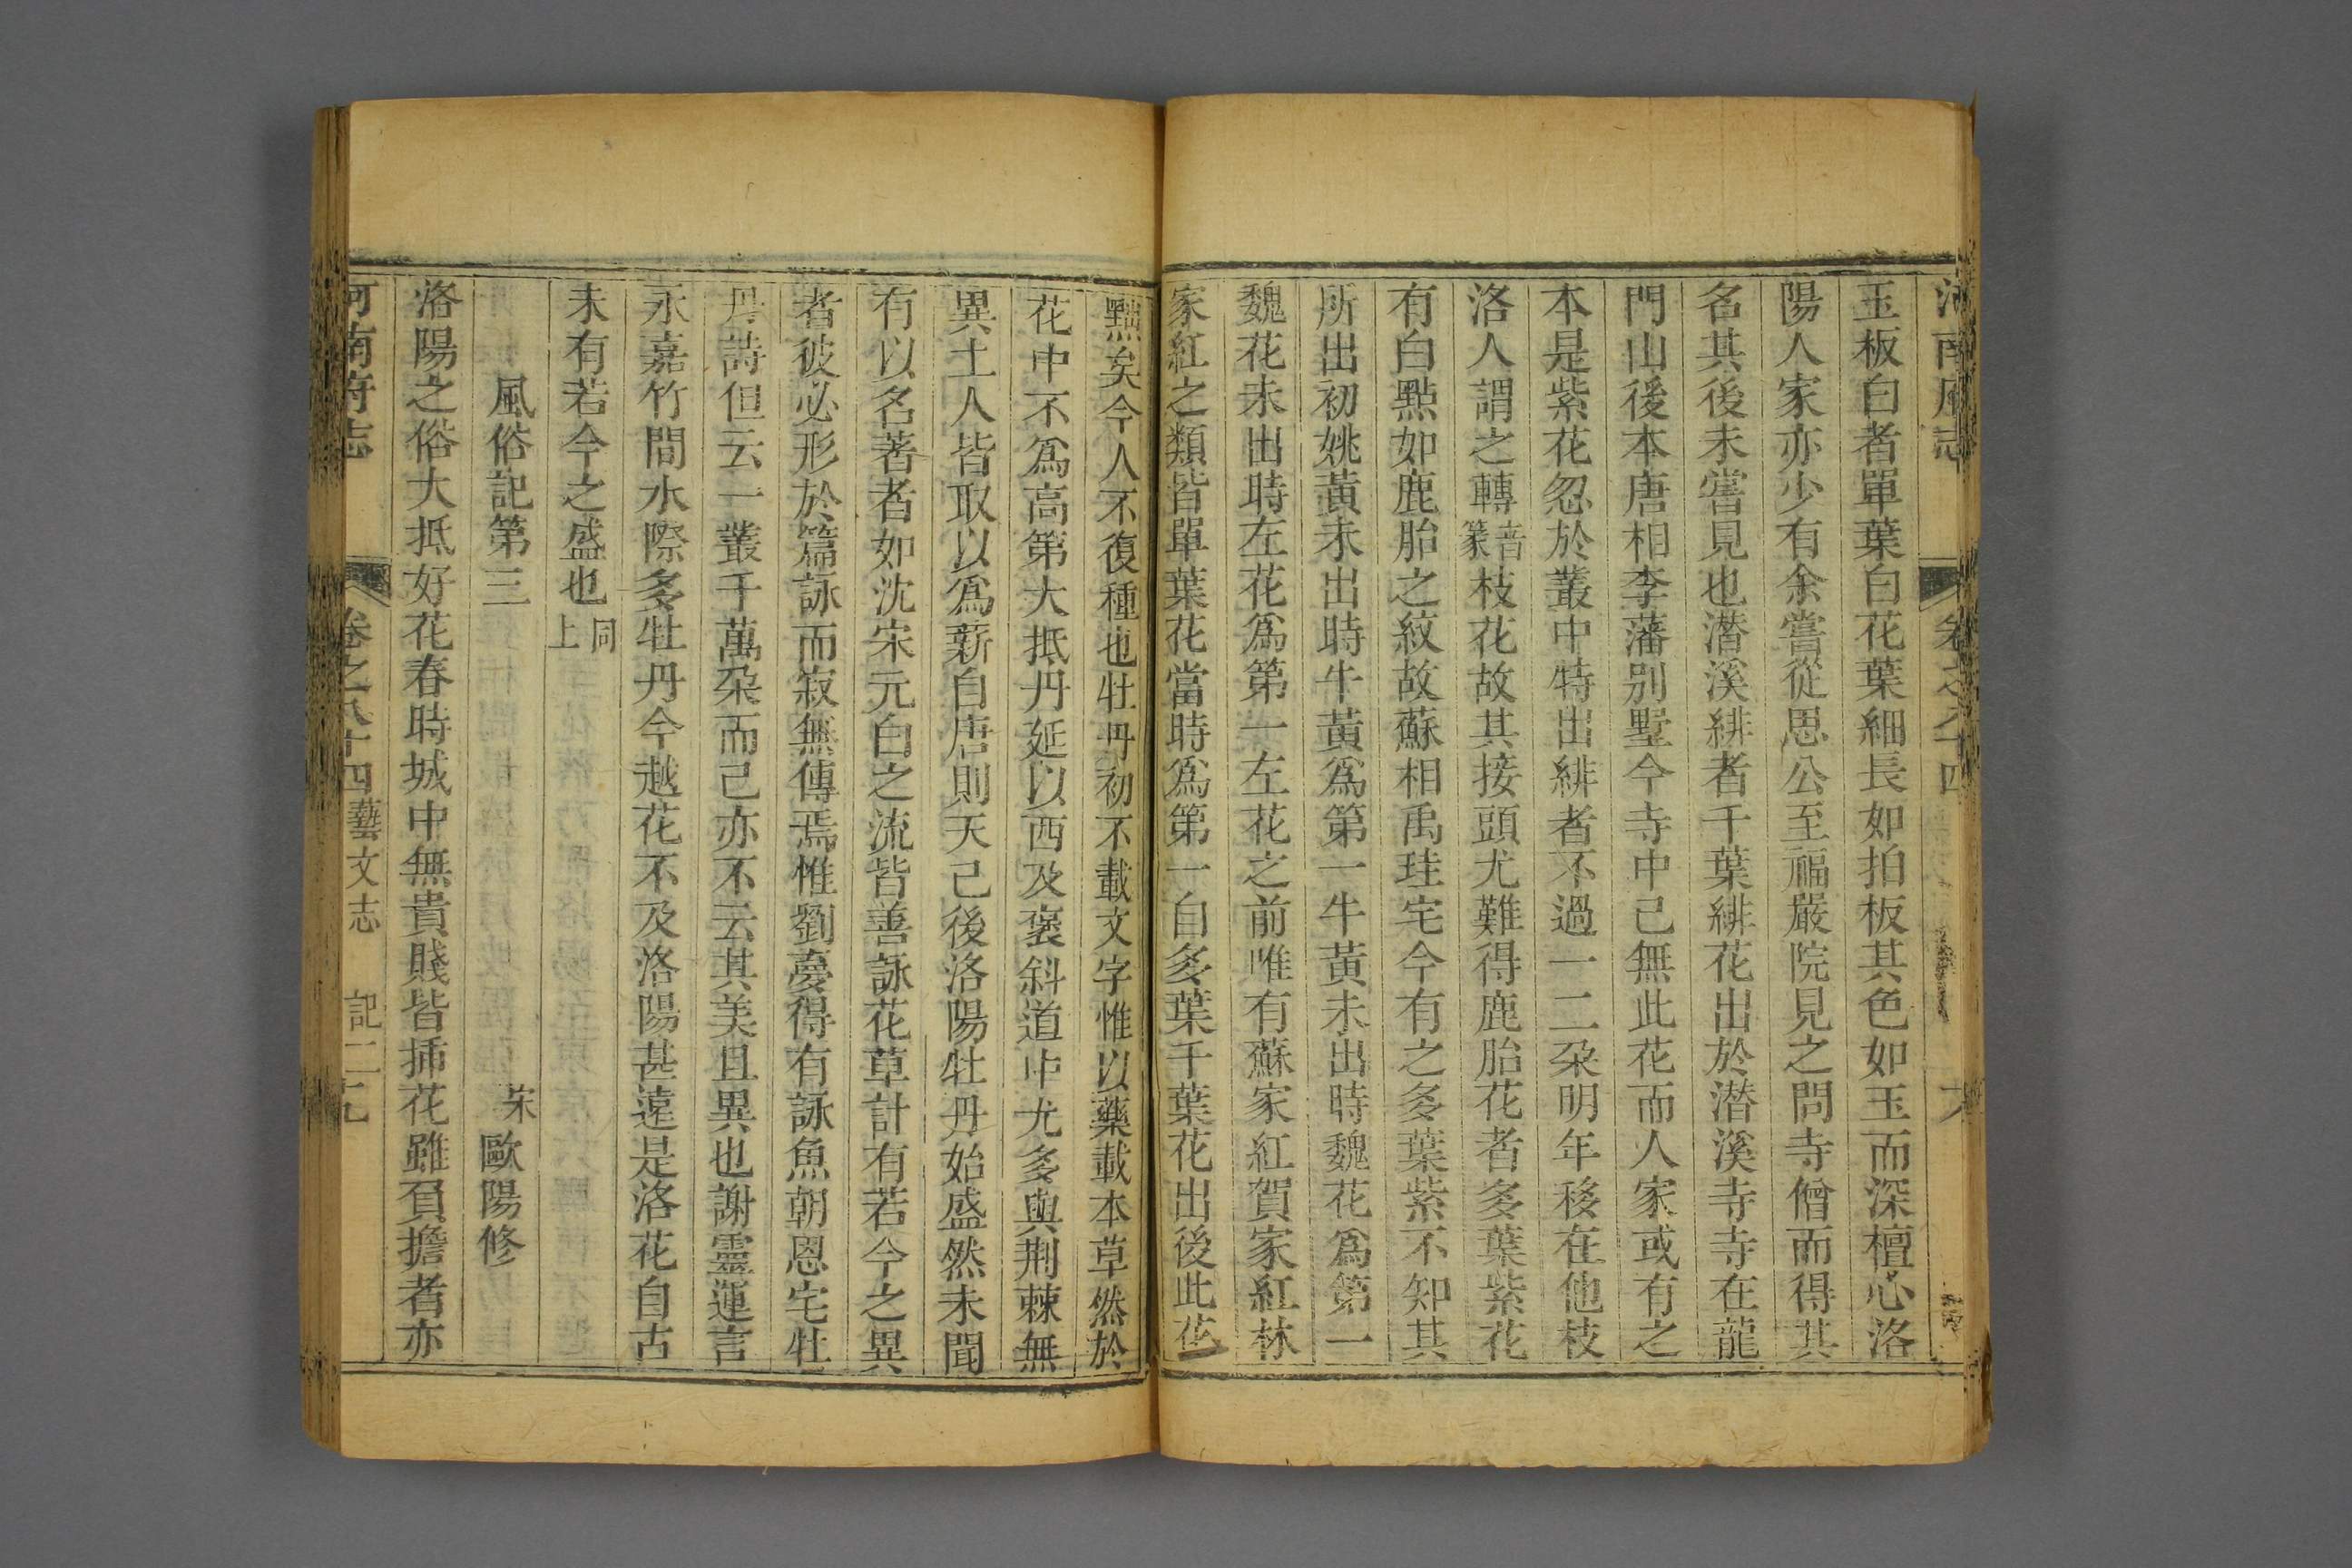 玉板白者單葉白花葉細長如拍板其色如玉而深檀心洛
陽人家亦少有余嘗從思公至福嚴院見之問寺僧而得其
名其後未嘗見也潛溪緋者千葉緋花出於潛溪寺寺在龍
門山後本唐相李藩別墅今寺中已無此花而人家或有之
本是紫花忽於叢中特出緋者不過一二朶明年移在他枝
洛人謂之轉音篆枝花故其接頭尤難得鹿胎花者多葉紫花
有白點如鹿胎之紋故蘇相禹珪宅今有之多葉紫不知其
所出初姚黃未出時牛黃爲第一牛黃未出時魏花爲第一
魏花未出時左花爲第一左花之前唯有蘇家紅賀家紅林
家紅之類皆單葉花當時爲第一自多葉千葉花出後此花
黜矣今人不復種也牡丹初不載文字惟以藥載本草然於
花中不爲高第大抵丹延以西及褒斜道中尤多與荆棘無
異土人皆取以爲薪自唐則天已後洛陽牡丹始盛然未聞
有以名著者如沈宋元白之流皆善詠花草計有若今之異
者彼必形於篇詠而寂無傳焉惟劉夢得有詠魚朝恩宅牡
丹詩但云一叢千萬朶而已亦不云其美且異也謝靈運言
永嘉竹間水際多牡丹今越花不及洛陽甚遠是洛花自古
未有若今之盛也同上
風俗記第三
宋歐陽修
洛陽之俗大抵好花春時城中無貴賤皆揷花雖負擔者亦
河南府志 卷之八十四 藝文志 記二